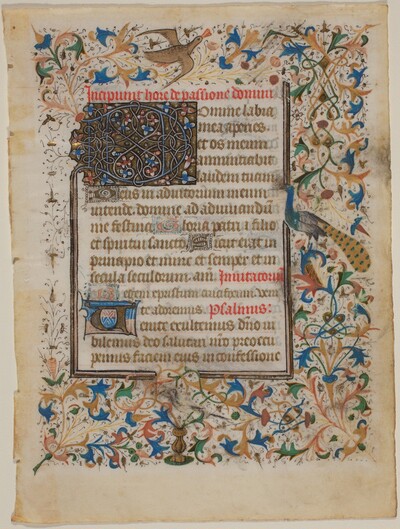 Incipiunt hore de passione domini
Domine labia
mea aperies
et os meum
annuntiabit
laudem tuam
Deus in adiutorium meum
intende. domine ad adiuuandū
me festina Gloria patri et filio
et spiritui sancto Sicut erat in
principio et nunc et semper et in
secula seculorum. am̄. Inuitatoriū
Regem crucifixum. Veni
te adoremus. Psalmus.
Venite exultemus dn̄o iu
bilemus deo salutari nr̄o preoccu
pemus faciem eius in confessione